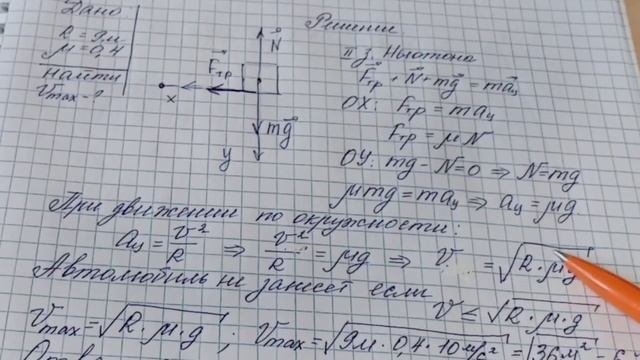 Дано
R = 9м
μ = 0,4
Найти
Vmax - ?
Решение
II з. Ньютона
F⃗тр + N⃗ + mg⃗ = ma⃗ц
OX: Fтр = maц
Fтр = μN
OY: mg - N = 0 ⇒ N = mg
μmg = maц ⇒ aц = μg
N⃗
F⃗тр
x
mg⃗
y
При движении по окружности:
aц = V²/R ⇒ V²/R = μg ⇒ V = √R·μg
Автомобиль не занесет если
V ≤ √R·μ·g
Vmax = √R·μ·g ; Vmax = √9м·0,4·10м/с² = √36м²